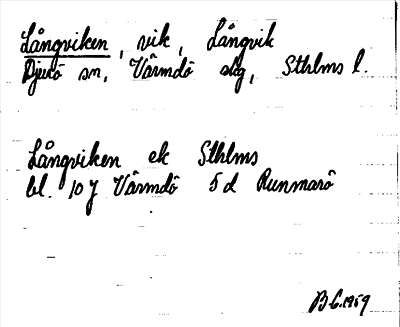 Långviken, vik, Långvik
Djurö sn, Värmdö skg, Sthlms l.
Långviken ek Sthlms
bl. 10 J Värmdö 5 d Runmarö
B G. 1959